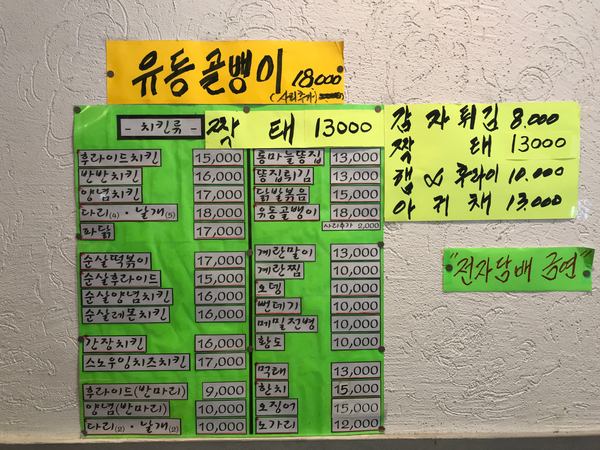 유동골뱅이 18,000
(사리추가)
- 치킨류 -
짝 태 13000
후라이드치킨 15,000
반반치킨 16,000
양념치킨 17,000
다리(4)·날개(5) 18,000
파닭 17,000
순살떡볶이 17,000
순살후라이드 15,000
순살양념치킨 16,000
순살레몬치킨 16,000
간장치킨 16,000
스노우잉치즈치킨 17,000
후라이드(반마리) 9,000
양념(반마리) 10,000
다리(2)·날개(2) 10,000
통마늘똥집 13,000
똥집튀김 13,000
닭발볶음 15,000
유동골뱅이 18,000
사리추가 2,000
계란말이 13,000
계란찜 10,000
오뎅 10,000
뻔데기 10,000
메밀전병 10,000
황도 10,000
먹태 13,000
한치 15,000
오징어 15,000
노가리 12,000
감자튀김 8.000
짝 태 13000
햄 & 후라이 10.000
아귀채 13.000
"전자담배 금연"